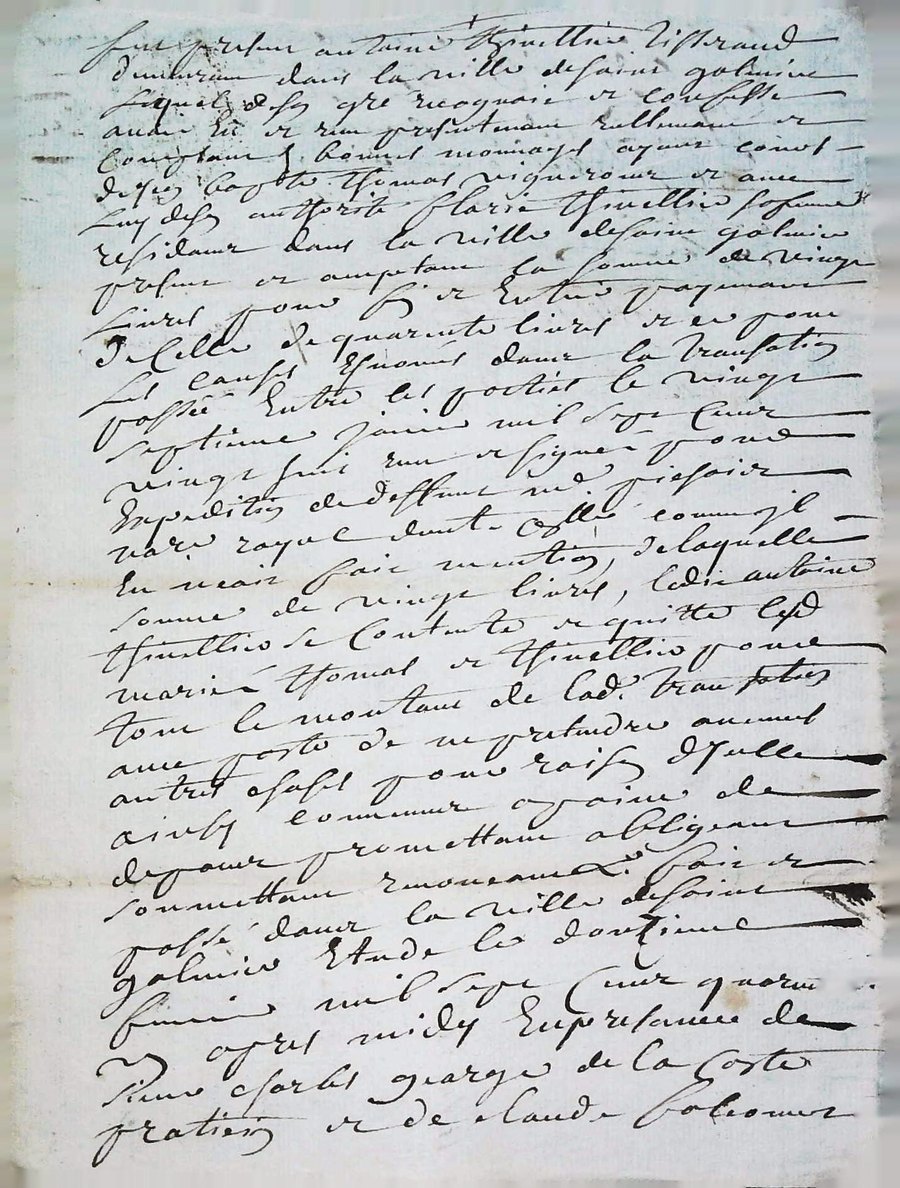 fut present antoine thivellier tisserand
demeurant dans la ville desaint galmier
Lequel desón gré recognoit et confesse
avoir Eu et reçu presentement reellement et
Comptant En bonnes monnoyes ayant cours
de Jean bapte thomas vigneron et avec
Luy desón authorité flarie thivellier sa femme
residant dans la ville desaint galmier
present et acceptant la somme de vingt
Livres pour fin et Entier payement
de Celle de quarente livres et ce pour
Les causes Enoncés dans la transation
passée Entre les parties le vingt
septieme janvier mil sept Cent
vingt huit reçu et signée pour
Expedition de deffunt me
notre royal dont celle comme jl
En avoir fait mention, delaquelle
somme de vingt livres, ledit antoine
thivellier se Contente et quitte lesd
mariés thomas et thivellier pour
tout le montant de lad. transation
avec pacte de ne pretendre aucunes
autres choses pour raison d'Jcelle
ainsy convenu apaine de
depans promettant obligeant
soumettant renonceant &a. fait et
passé dans la ville desaint
galmier Etude le douzieme
fevrier mil sept Cent quarante
apres midy Enpresance de
sieur charles george de la Coste
pratitien et de claude